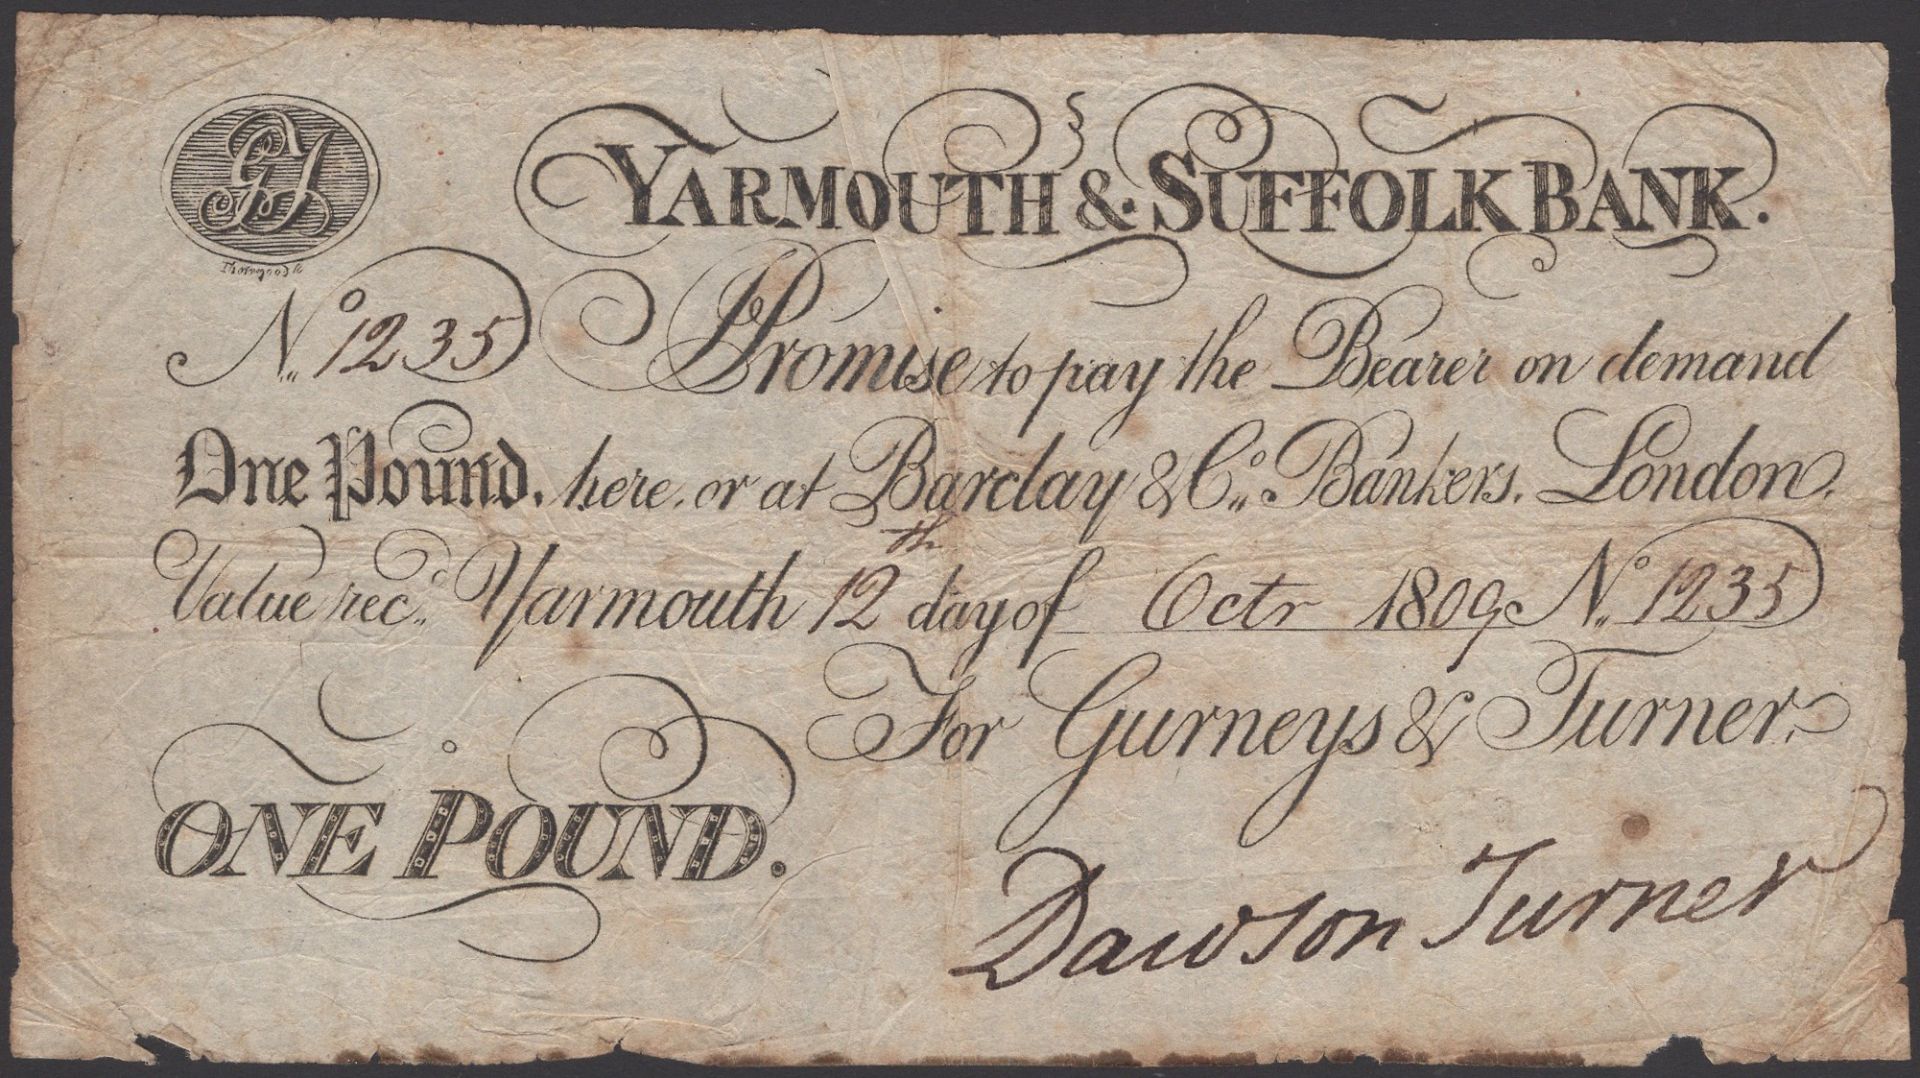 GT
YARMOUTH & SUFFOLK BANK.
Thorogood Sc
No 1235 I Promise to pay the Bearer on demand
One Pound. here, or at Barclay & Co. Bankers, London,
Value recd. Yarmouth 12th day of Octr 1809 No 1235
For Gurneys & Turner.
ONE POUND.
Dawson Turner